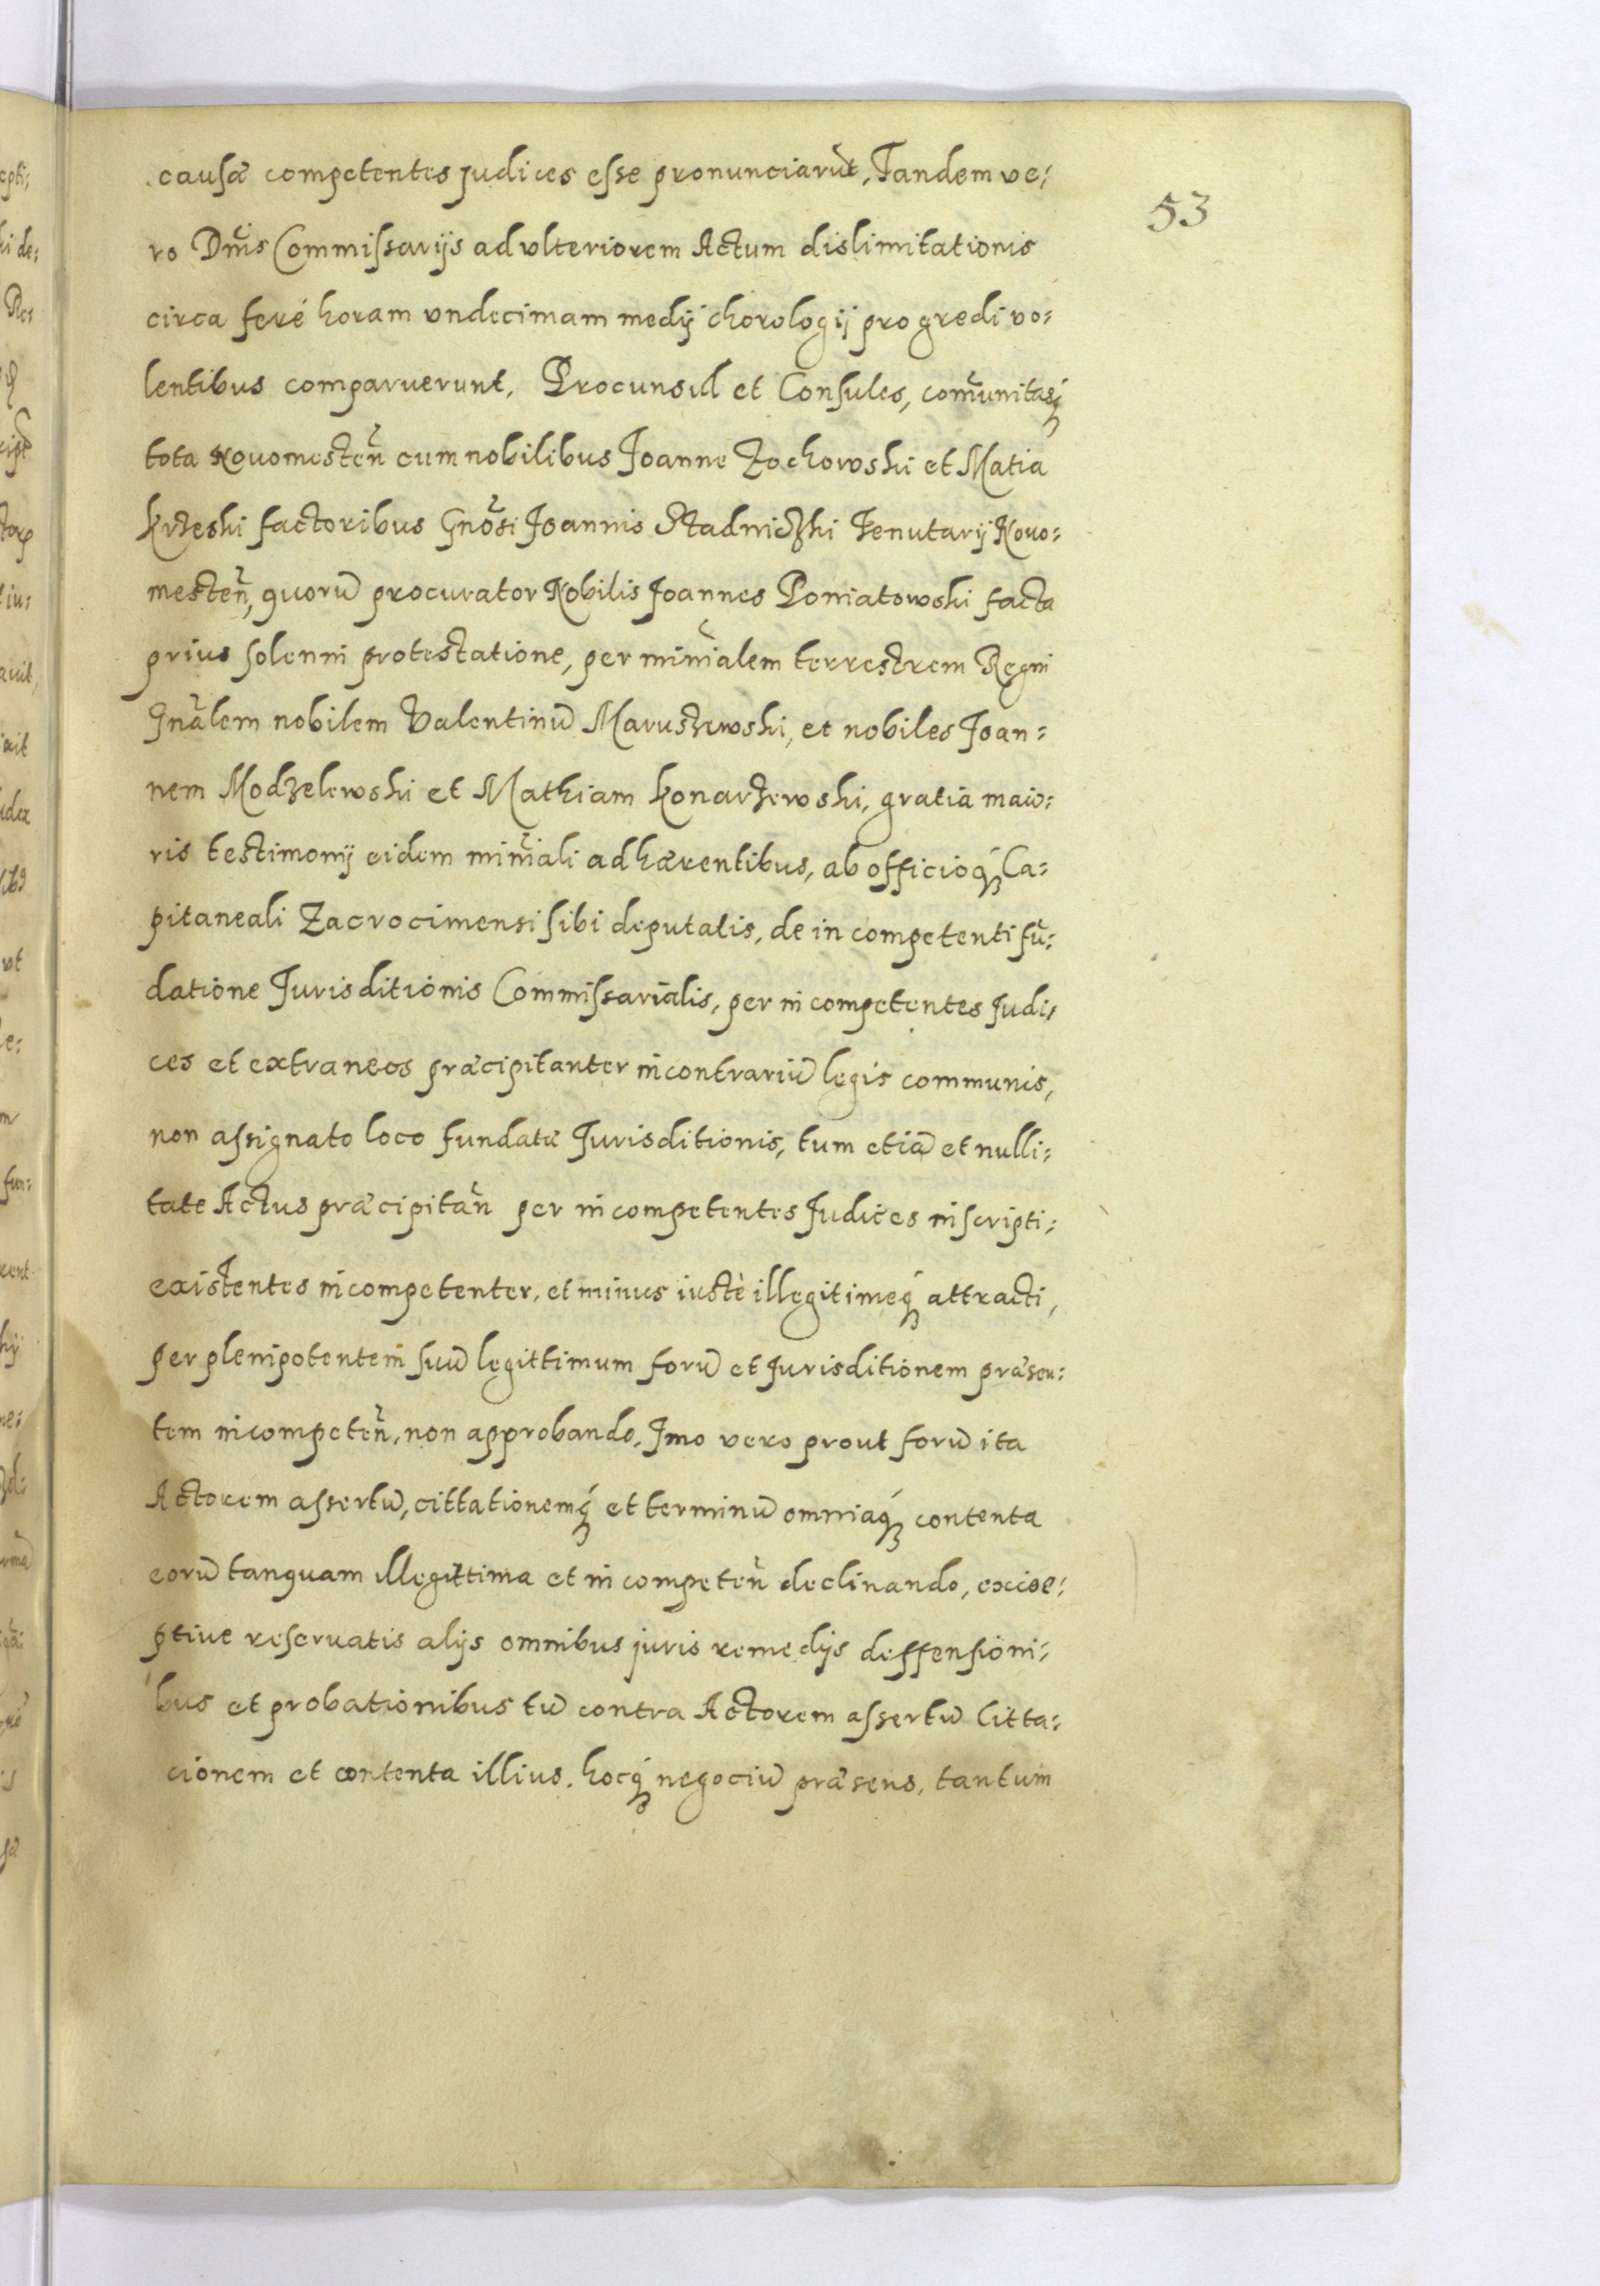 causæ competentes judices esse pronunciarūt, Tandem ve:
53
ro Dn̄is Commissarijs ad vlteriorem Actum dislimitationis
circa feré horam vndecimam medij chorologij progredi vo:
lentibus comparuerunt, Procunsul et Consules, com̄unitasq́
tota Nouomesten̄ cum nobilibus Joanne Zochowski et Matia
Krzeski factoribus Gn̄osi Joannis Stadniczki Tenutarij Nouo:
mesten̄, quorū procurator Nobilis Joannes Poniatowski facta
prius solenni protestatione, per minīalem terrestrem Regni
Gnālem nobilem Valentinū Maruszewski, et nobiles Joan:
nem Modzelewski et Mathiam Konarzewski, gratia maio:
ris testimonij eidem minīali adhærentibus, ab officioq́ Ca:
pitaneali Zacrocimensi sibi deputatis, de in competenti fū:
datione Jurisditionis Commissarialis, per in competentes Judi:
ces et extraneos præcipitanter in contrariū legis communis,
non assignato loco fundatæ Jurisditionis, tum etiā et nulli:
tate Actus præcipitan̄ per in competentes Judices in scripti:
existentes incompetenter, et minus iustè illegitimeq́ attracti,
per plenipotentem suū legittimum forū et Jurisditionem præsen:
tem incompeten̄, non approbando, Jmo vero prout forū ita
Actorem assertū, cittationemq́ et terminū omniaq́ contenta
eorū tanquam illegittima et in competen̄ declinando, excoe:
ptiue reseruatis alijs omnibus juris remedijs deffensioni:
bus et probationibus tū contra Actorem assertū Citta:
cionem et contenta illius, hocq́ negociū præsens, tantum